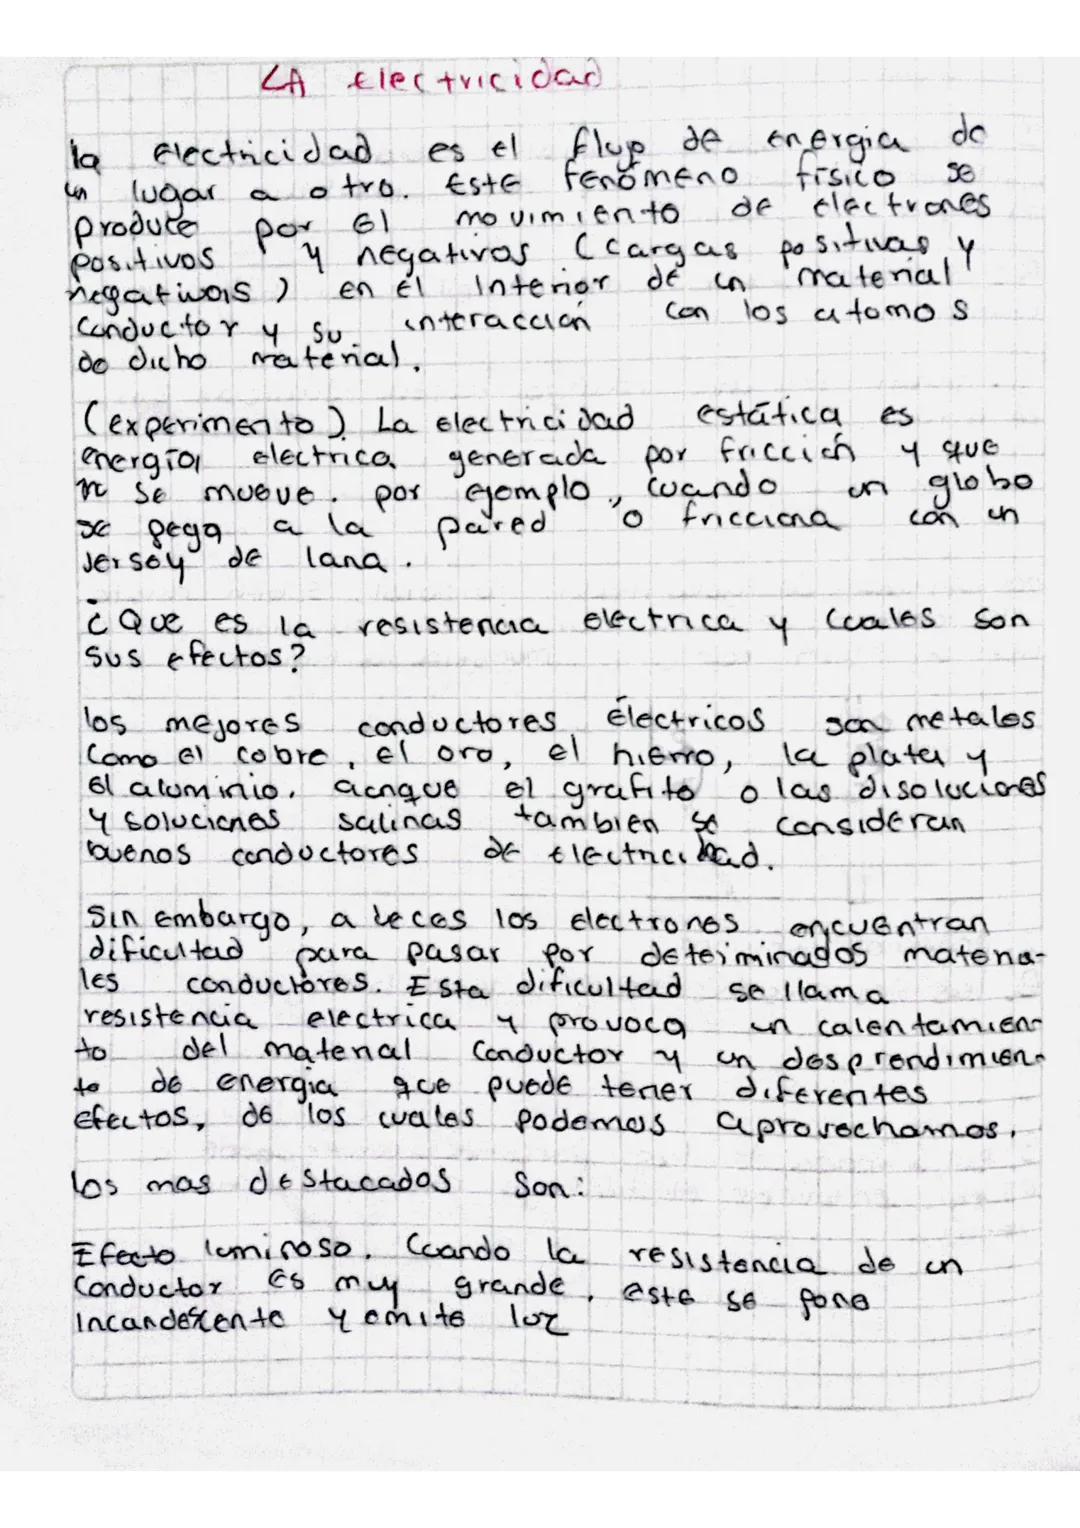 LA Electricidad
la electricidad es el flujo de energia de
un lugar a otro. Este fenómeno físico se
produce por El movimiento de electrones
positivos y negativos (cargas positivas y
negativas) en el Interior de un material
Conductor y su interacción con los atomos
de dicho material.
(experimento) La electricidad estática es
energia electrica generada por fricción y que
no se mueve. por ejemplo, cuando un globo
se pega a la pared o fricciona con un
Jersey de lana.
¿Que es la resistencia electrica y Cuales son
sus efectos?
los mejores conductores électricos son metales
Como el cobre, el oro, el hierro, la plata y
el aluminio. aunque el grafito o las disoluciones
y soluciones salinas tambien se consideran
buenos conductores de electricidad.
Sin embargo, a veces los electrones encuentran
dificultad para pasar por determinados materia-
les conductores. Esta dificultad se llama
resistencia electrica y provoca un calentamien-
to del material Conductor y un desprendimien-
to de energia que puede tener diferentes
efectos, de los cuales podemos aprovecharnos.
los mas destacados son:
Efecto luminoso. Cuando la resistencia de un
Conductor es muy grande, este se pone
Incandescente y emite luz